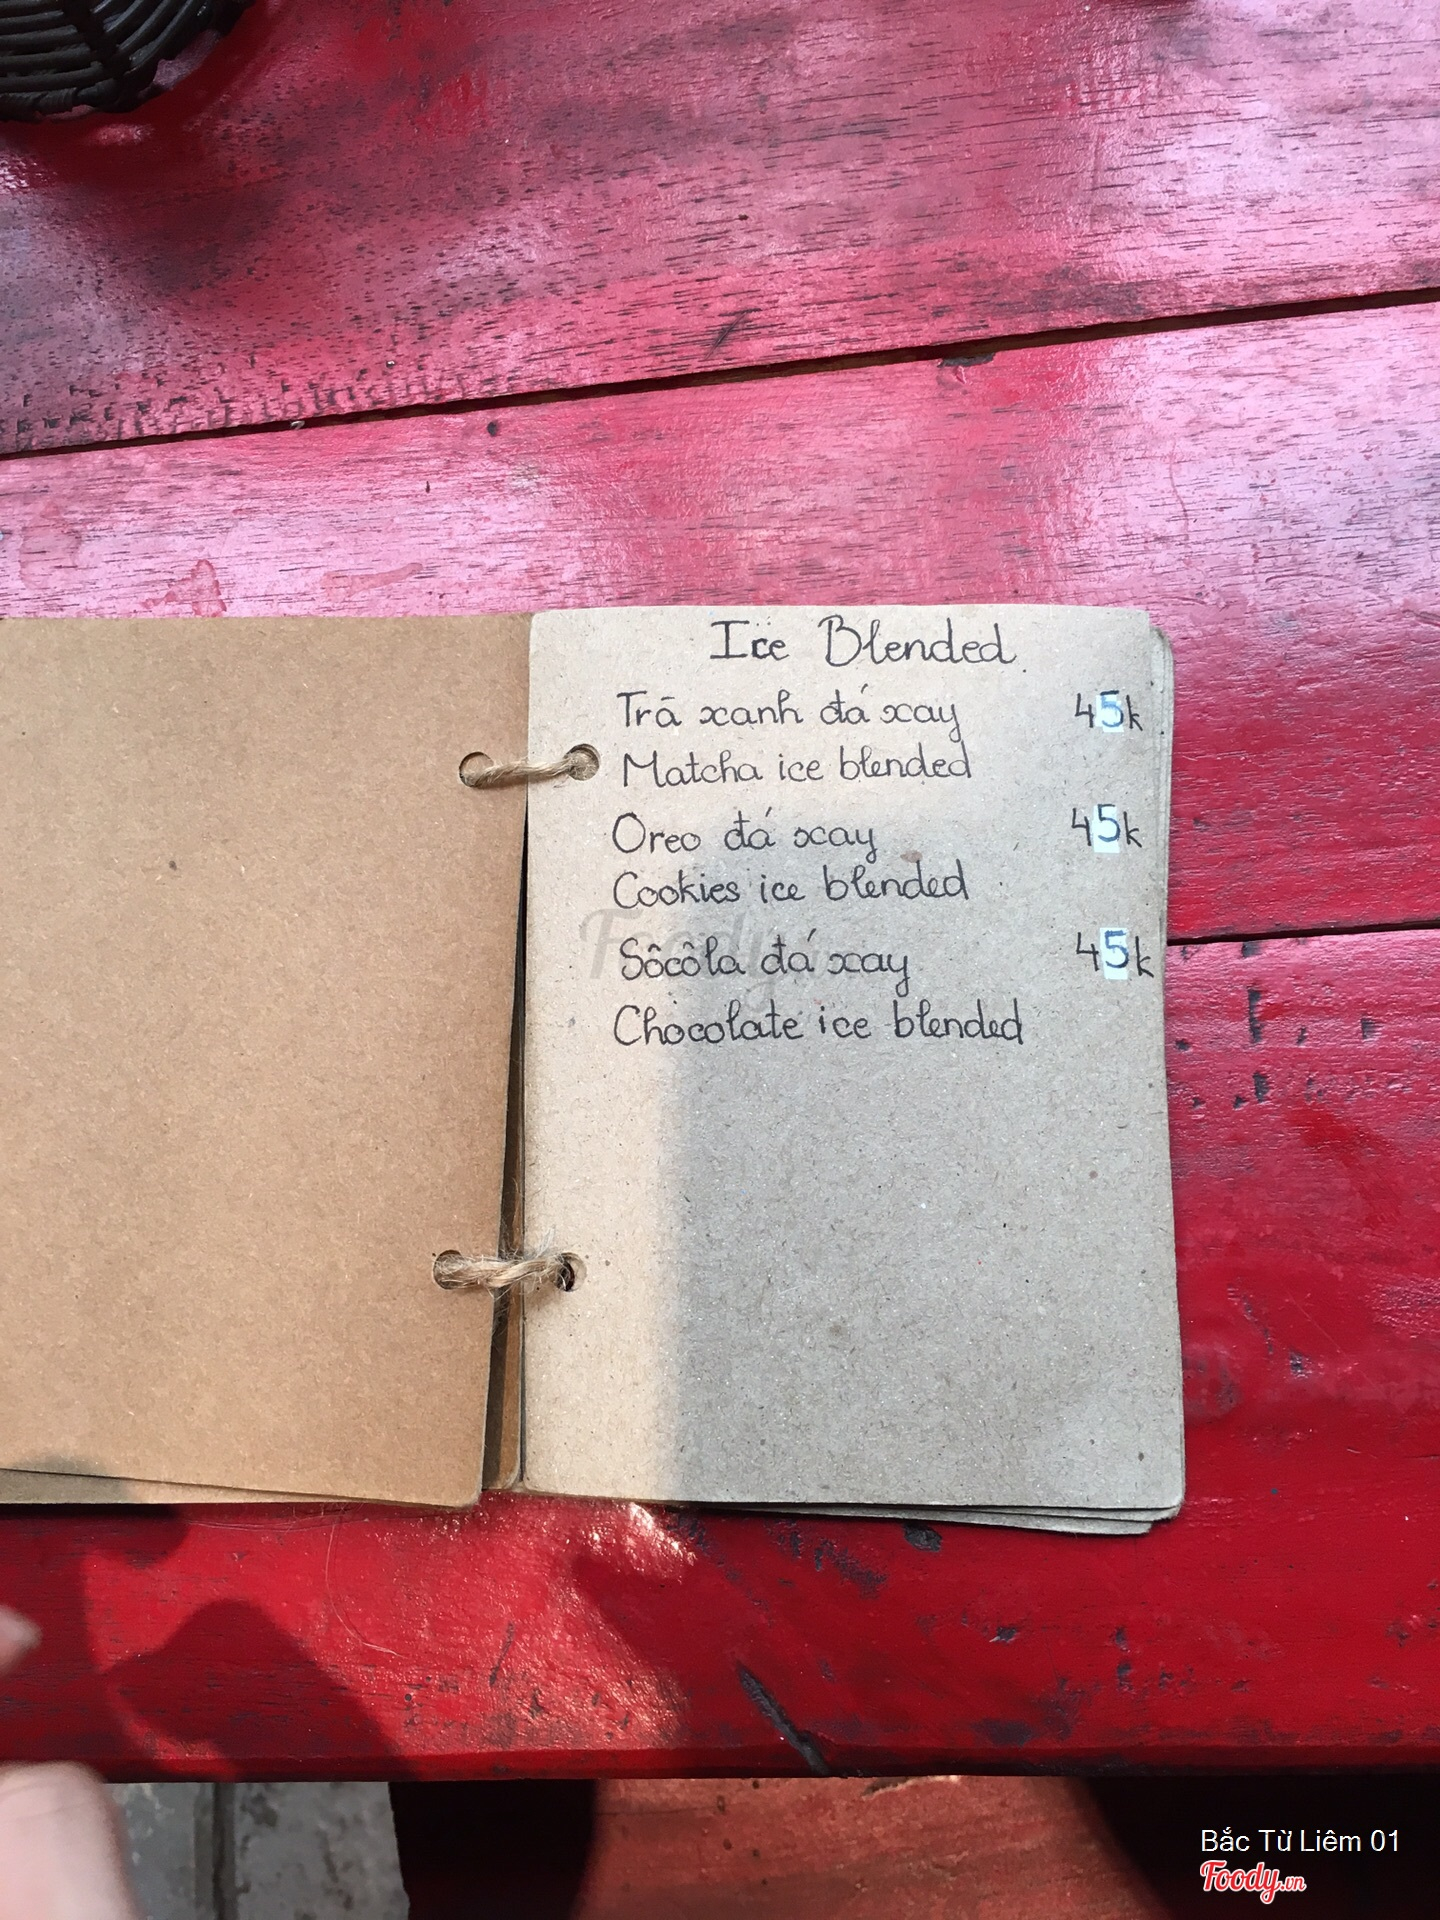 Ice Blended
Trà xanh đá xay 45k
Matcha ice blended
Oreo đá xay 45k
Cookies ice blended
Sôcôla đá xay 45k
Chocolate ice blended
Foody
Bắc Từ Liêm 01
Foody.vn